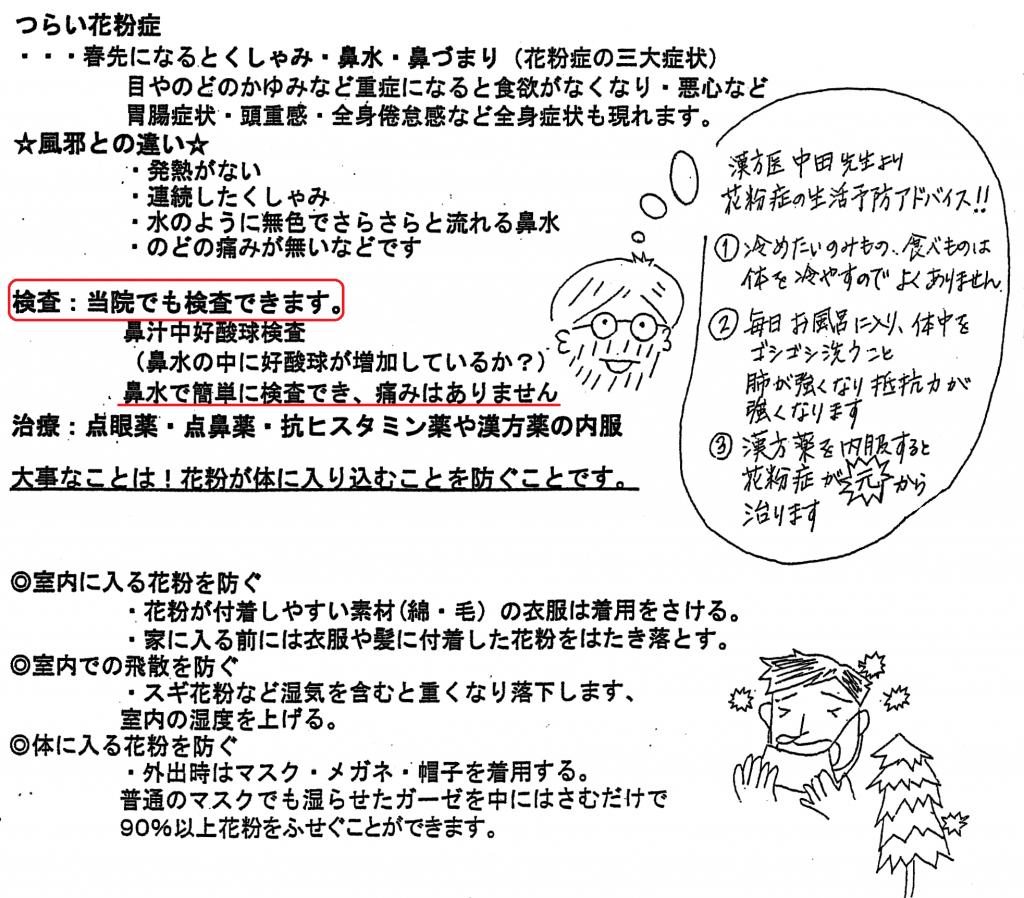 つらい花粉症
・・・春先になるとくしゃみ・鼻水・鼻づまり（花粉症の三大症状）
目やのどのかゆみなど重症になると食欲がなくなり・悪心など
胃腸症状・頭重感・全身倦怠感など全身症状も現れます。
☆風邪との違い☆
・発熱がない
・連続したくしゃみ
・水のように無色でさらさらと流れる鼻水
・のどの痛みが無いなどです
検査：当院でも検査できます。
鼻汁中好酸球検査
（鼻水の中に好酸球が増加しているか？）
鼻水で簡単に検査でき、痛みはありません
治療：点眼薬・点鼻薬・抗ヒスタミン薬や漢方薬の内服
大事なことは！花粉が体に入り込むことを防ぐことです。
漢方医 中田先生より
花粉症の生活予防アドバイス!!
①冷めたいのみもの、食べものは
体を冷やすので よくありません。
②毎日 お風呂に入り、体中を
ゴシゴシ洗うこと
肺が強くなり 抵抗力が
強くなります
③漢方薬を内服すると
花粉症が元から
治ります
◎室内に入る花粉を防ぐ
・花粉が付着しやすい素材(綿・毛）の衣服は着用をさける。
・家に入る前には衣服や髪に付着した花粉をはたき落とす。
◎室内での飛散を防ぐ
・スギ花粉など湿気を含むと重くなり落下します、
室内の湿度を上げる。
◎体に入る花粉を防ぐ
・外出時はマスク・メガネ・帽子を着用する。
普通のマスクでも湿らせたガーゼを中にはさむだけで
90%以上花粉をふせぐことができます。